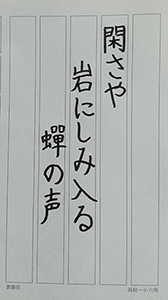 閑さや
岩にしみ入る
蟬の声
書藝社
高校〜小六用